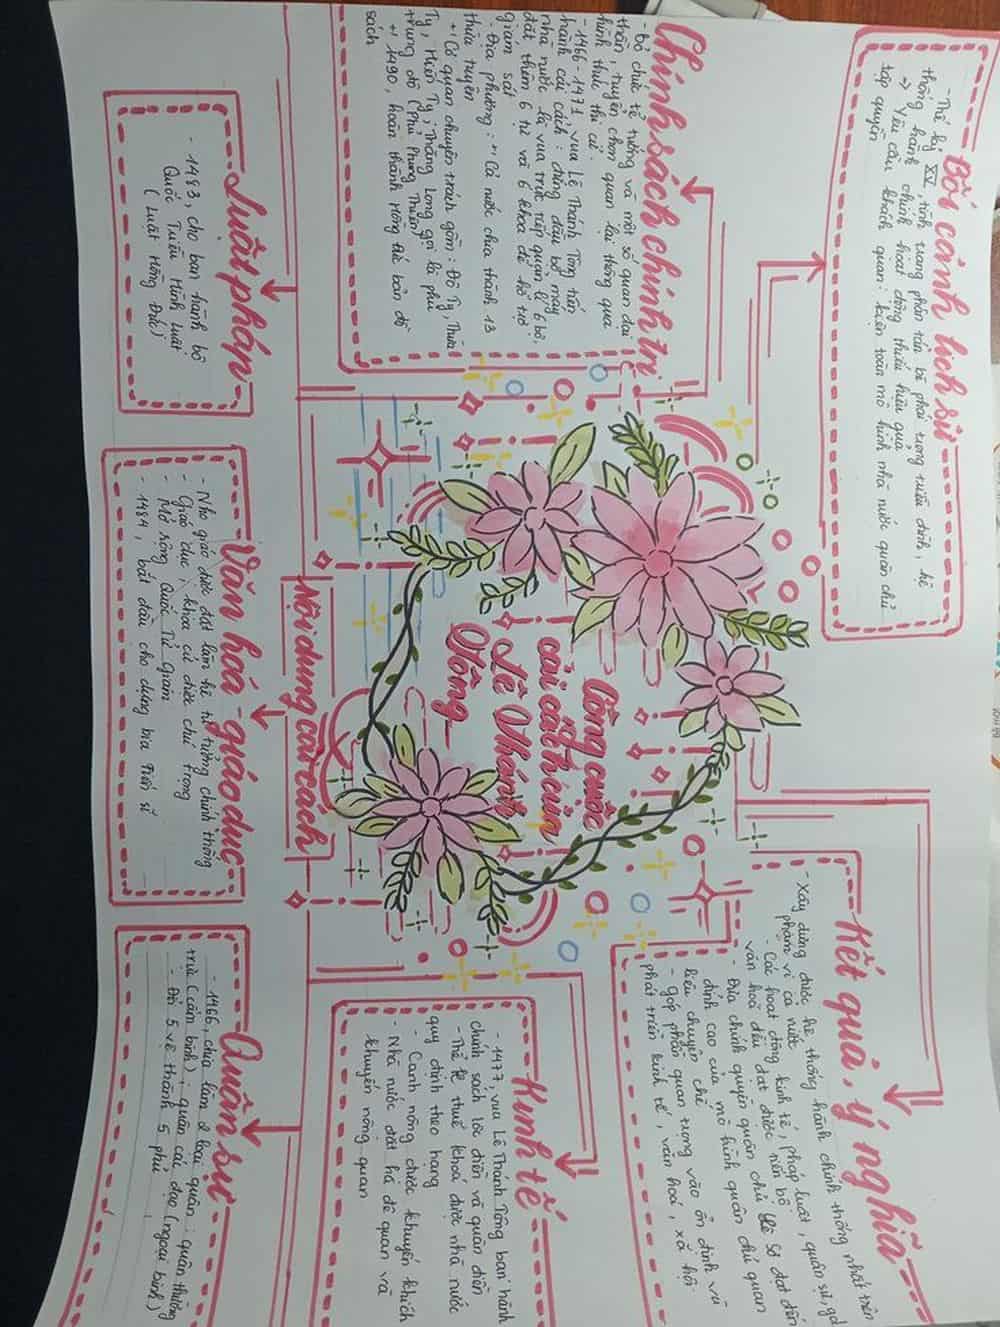 Công cuộc
cải cách của
Lê Thánh
Tông
Bối cảnh lịch sử
- Thế kỷ XV, tình trạng phân tán bè phái trong triều đình, hệ
thống hành chính hoạt động thiếu hiệu quả
=> Yêu cầu khách quan: kiện toàn mô hình nhà nước quân chủ
tập quyền
Kết quả, ý nghĩa
- Xây dựng được hệ thống hành chính thống nhất trên
phạm vi cả nước
- Các hoạt động kinh tế, pháp luật, quân sự, gd
văn hoá đều đạt được tiến bộ
- Đưa chính quyền quân chủ Lê Sơ đạt đến
đỉnh cao của mô hình quân chủ quan
liêu chuyên chế
- góp phần quan trọng vào ổn định và
phát triển kinh tế, văn hoá, xã hội
Nội dung cải cách
Chính sách chính trị
- Bỏ chức tể tướng và một số quan đại
thần, tuyển chọn quan lại thông qua
hình thức thi cử.
- 1466 - 1471 vua Lê Thánh Tông tiến
hành cải cách: đứng đầu bộ máy
nhà nước là vua trực tiếp quản lí 6 bộ,
đặt thêm 6 tự và 6 khoa để hỗ trợ
giám sát
- Địa phương: +) Cả nước chia thành 13
thừa tuyên
+) Cơ quan chuyên trách gồm: Đô Ty, Thừa
Ty, Hiến Ty; Thăng Long gọi là phủ
trung đô (Phủ Phụng Thiên)
+) 1490, hoàn thành Hồng Đức bản đồ
sách
Luật pháp
- 1483, cho ban hành bộ
Quốc Triều Hình Luật
(Luật Hồng Đức)
Văn hoá - giáo dục
- Nho giáo được đặt làm hệ tư tưởng chính thống
- Giáo dục, khoa cử được chú trọng
- Mở rộng Quốc Tử Giám
- 1484, bắt đầu cho dựng bia tiến sĩ
Quân sự
- 1466, chia làm 2 loại quân: quân thường
trực (cấm binh); quân các đạo (ngoại binh)
- Đổi 5 vệ thành 5 phủ
Kinh tế
- 1477, vua Lê Thánh Tông ban hành
chính sách lộc điền và quân điền
- Thể lệ thuế khoá được nhà nước
quy định theo hạng
- Canh nông được khuyến khích
- Nhà nước đặt hà đê quan và
khuyến nông quan